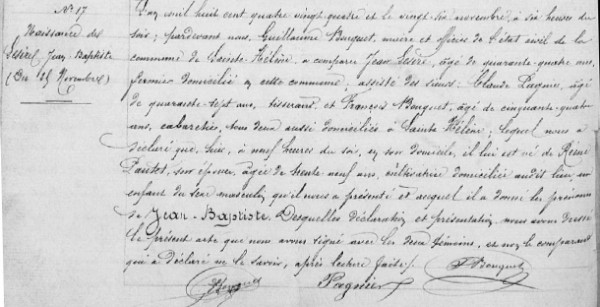 N° 17
Naissance de
Jean-Baptiste
(Du 25 Novembre)
L'an mil huit cent quatre vingt quatre et le vingt six novembre, à six heures du
soir; pardevant nous, Guillaume Bouquet, maire et officier de l'état civil de la
commune de Sainte-Hélène, a comparu Jean, âgé de quarante-quatre ans,
fermier domicilié en cette commune; assisté des sieurs: Claude, âgé
de quarante-sept ans, tisserand et François Bouquet, âgé de cinquante-quatre
ans, cabaretier, tous deux aussi domiciliés à Sainte Hélène; lequel nous a
déclaré que, hier, à neuf heures du soir, en son domicile, il lui est né de
son épouse, âgée de trente neuf ans, cultivatrice domiciliée audit lieu, un
enfant du sexe masculin qu'il nous a présenté et auquel il a donné les prénoms
de Jean-Baptiste. Desquelles déclaration et présentation nous avons dressé
le présent acte que nous avons signé avec les deux témoins, et non le comparant
qui a déclaré ne le savoir, après lecture faite.
Bouquet